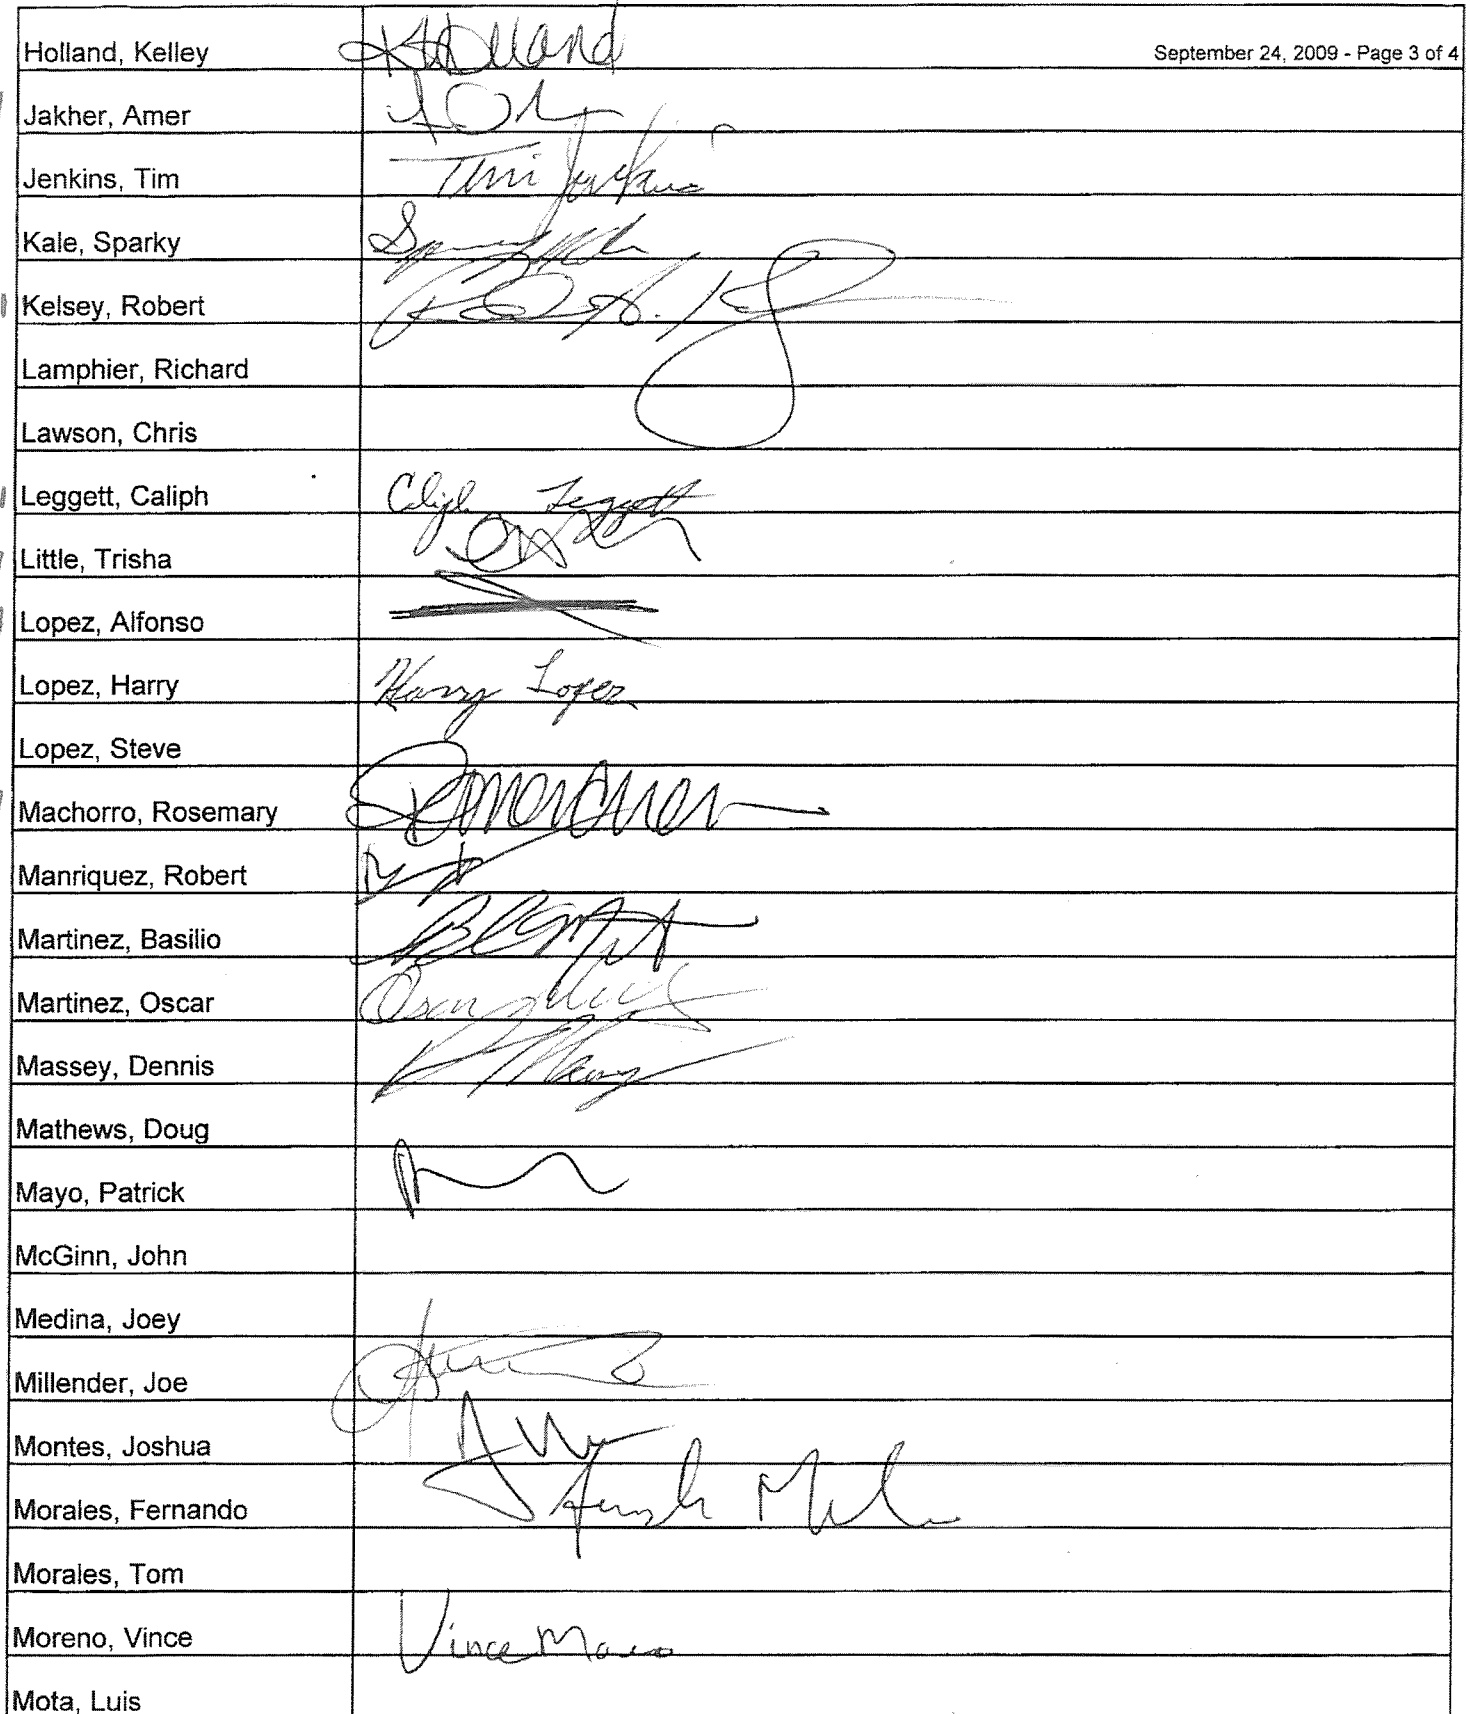 Holland, Kelley KHolland September 24, 2009 - Page 3 of 4
Jakher, Amer
Jenkins, Tim Tim Jenkins
Kale, Sparky
Kelsey, Robert
Lamphier, Richard
Lawson, Chris
Leggett, Caliph Caliph Leggett
Little, Trisha
Lopez, Alfonso
Lopez, Harry Harry Lopez
Lopez, Steve
Machorro, Rosemary
Manriquez, Robert
Martinez, Basilio
Martinez, Oscar Oscar
Massey, Dennis
Mathews, Doug
Mayo, Patrick
McGinn, John
Medina, Joey
Millender, Joe
Montes, Joshua
Morales, Fernando
Morales, Tom
Moreno, Vince Vince Moreno
Mota, Luis